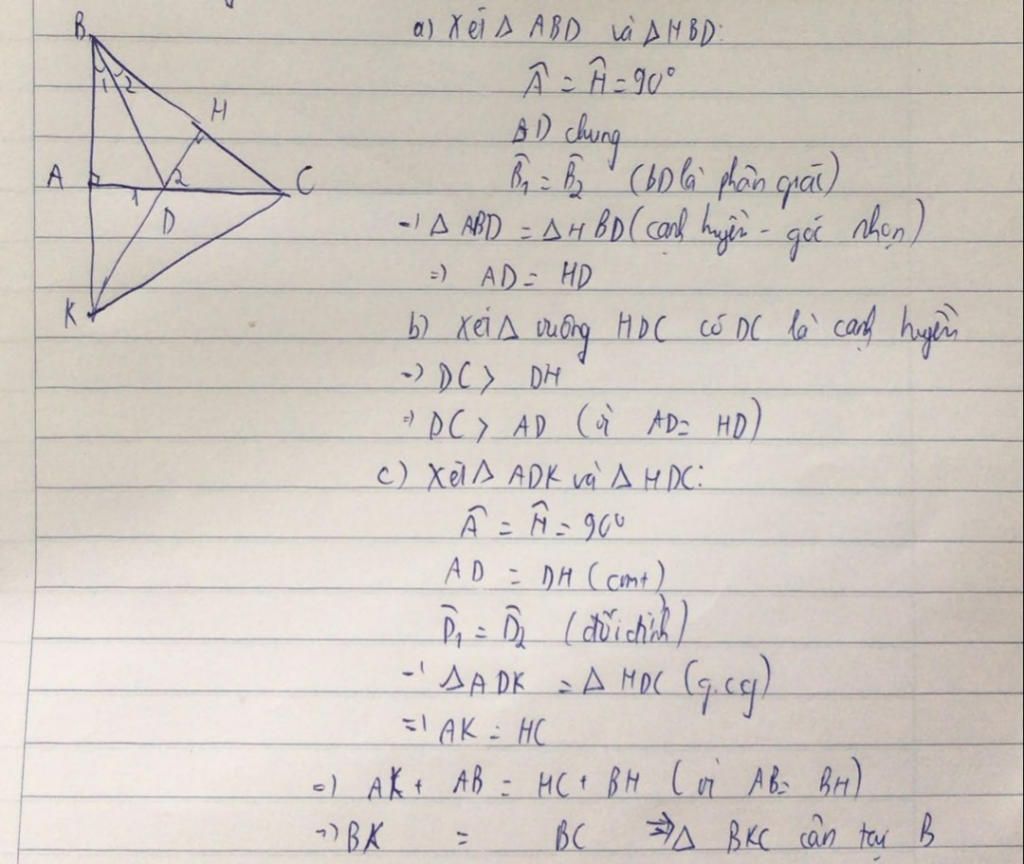 B
1 2
H
A
1
2
C
D
K
a) Xét Δ ABD và Δ HBD:
Â = Ĥ = 90°
AD chung
B̂₁ = B̂₂ (BD là phân giác)
=) Δ ABD = Δ HBD (cạnh huyền - góc nhọn)
=) AD = HD
b) Xét Δ vuông HDC có DC là cạnh huyền
=) DC > DH
=) DC > AD (vì AD = HD)
c) Xét Δ ADK và Δ HDC:
Â = Ĥ = 90°
AD = DH (cmt)
D̂₁ = D̂₂ (đối đỉnh)
=) Δ ADK = Δ HDC (g.c.g)
=) AK = HC
=) AK + AB = HC + BH (vì AB = BH)
=) BK = BC => Δ BKC cân tại B